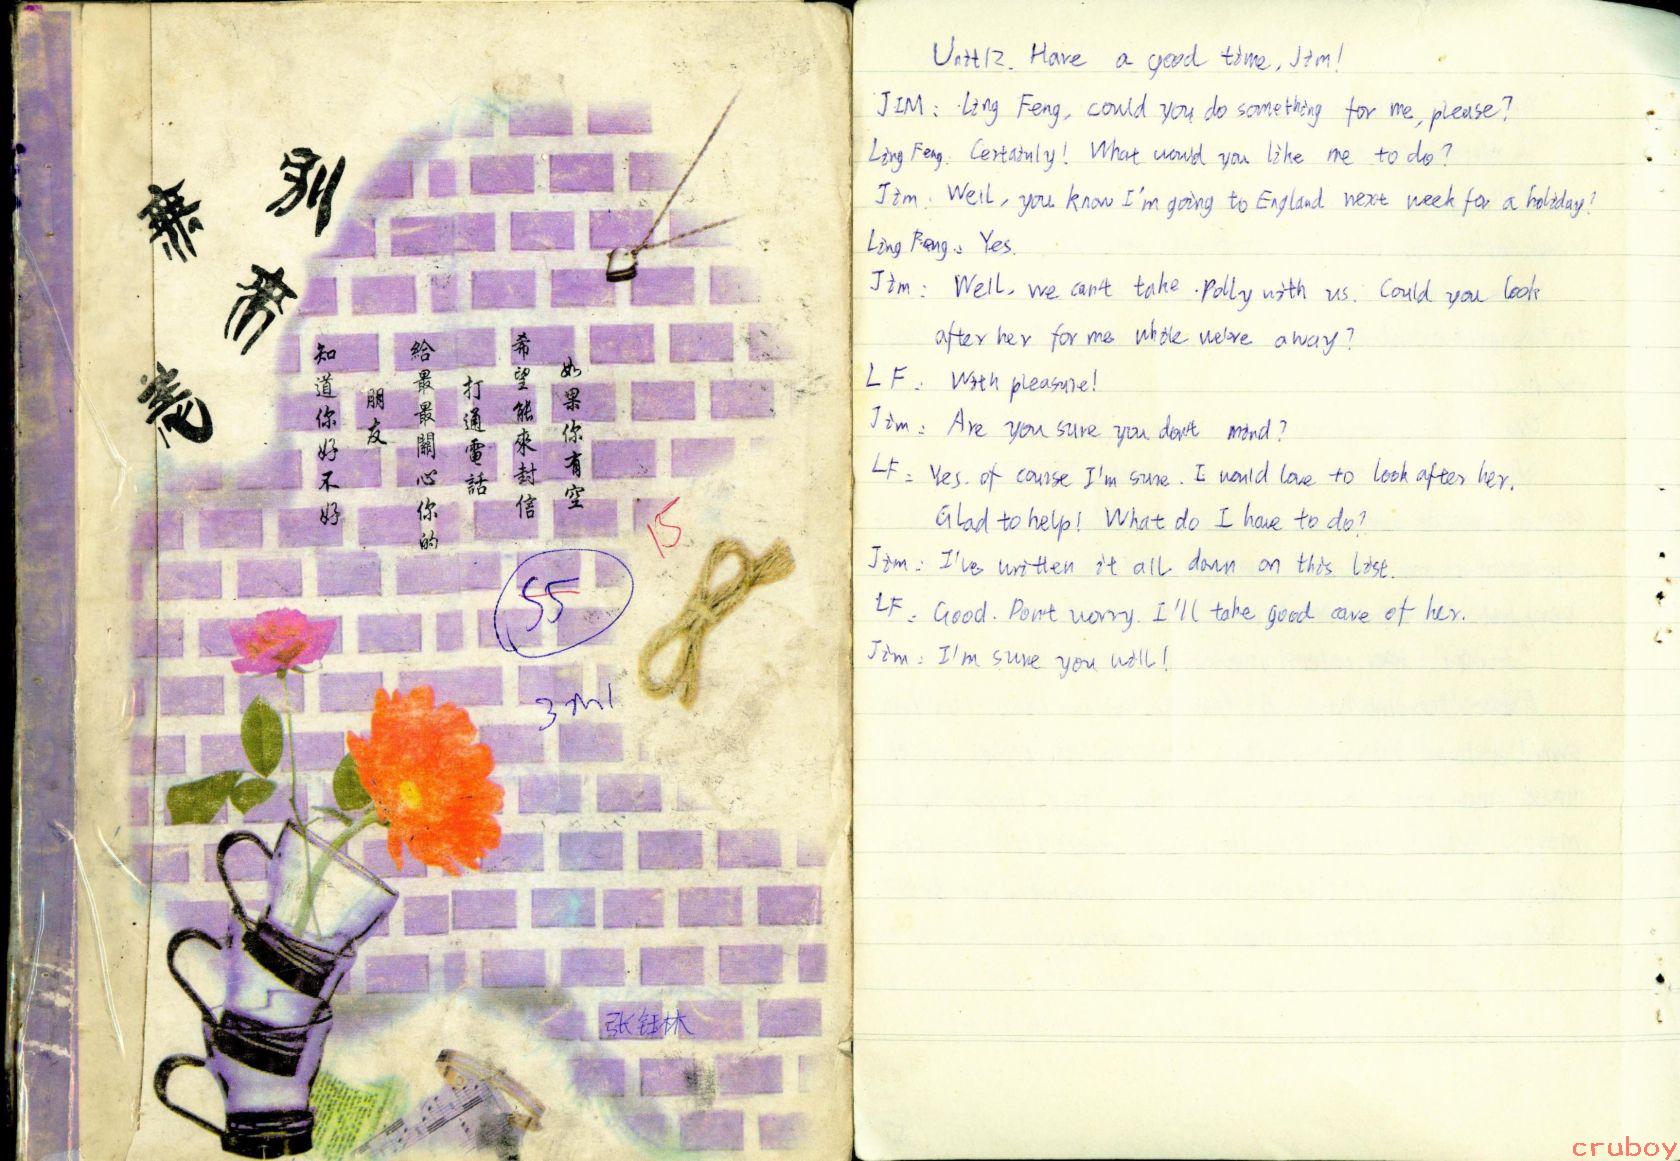 別
無
如果你有空
希望能來封信
打通電話
給最最關心你的
朋友
知道你好不好
15
55
张钰林
Unit12. Have a good time, Jim!
JIM: Ling Feng, could you do something for me, please?
Ling Feng. Certainly! What would you like me to do?
Jim: Well, you know I'm going to England next week for a holiday?
Ling Feng: Yes.
Jim: Well, we can't take Polly with us. Could you look
after her for me while we're away?
LF: With pleasure!
Jim: Are you sure you don't mind?
LF: Yes. of course I'm sure. I would love to look after her.
Glad to help! What do I have to do?
Jim: I've written it all down on this list.
LF: Good. Don't worry. I'll take good care of her.
Jim: I'm sure you will!
cruboy